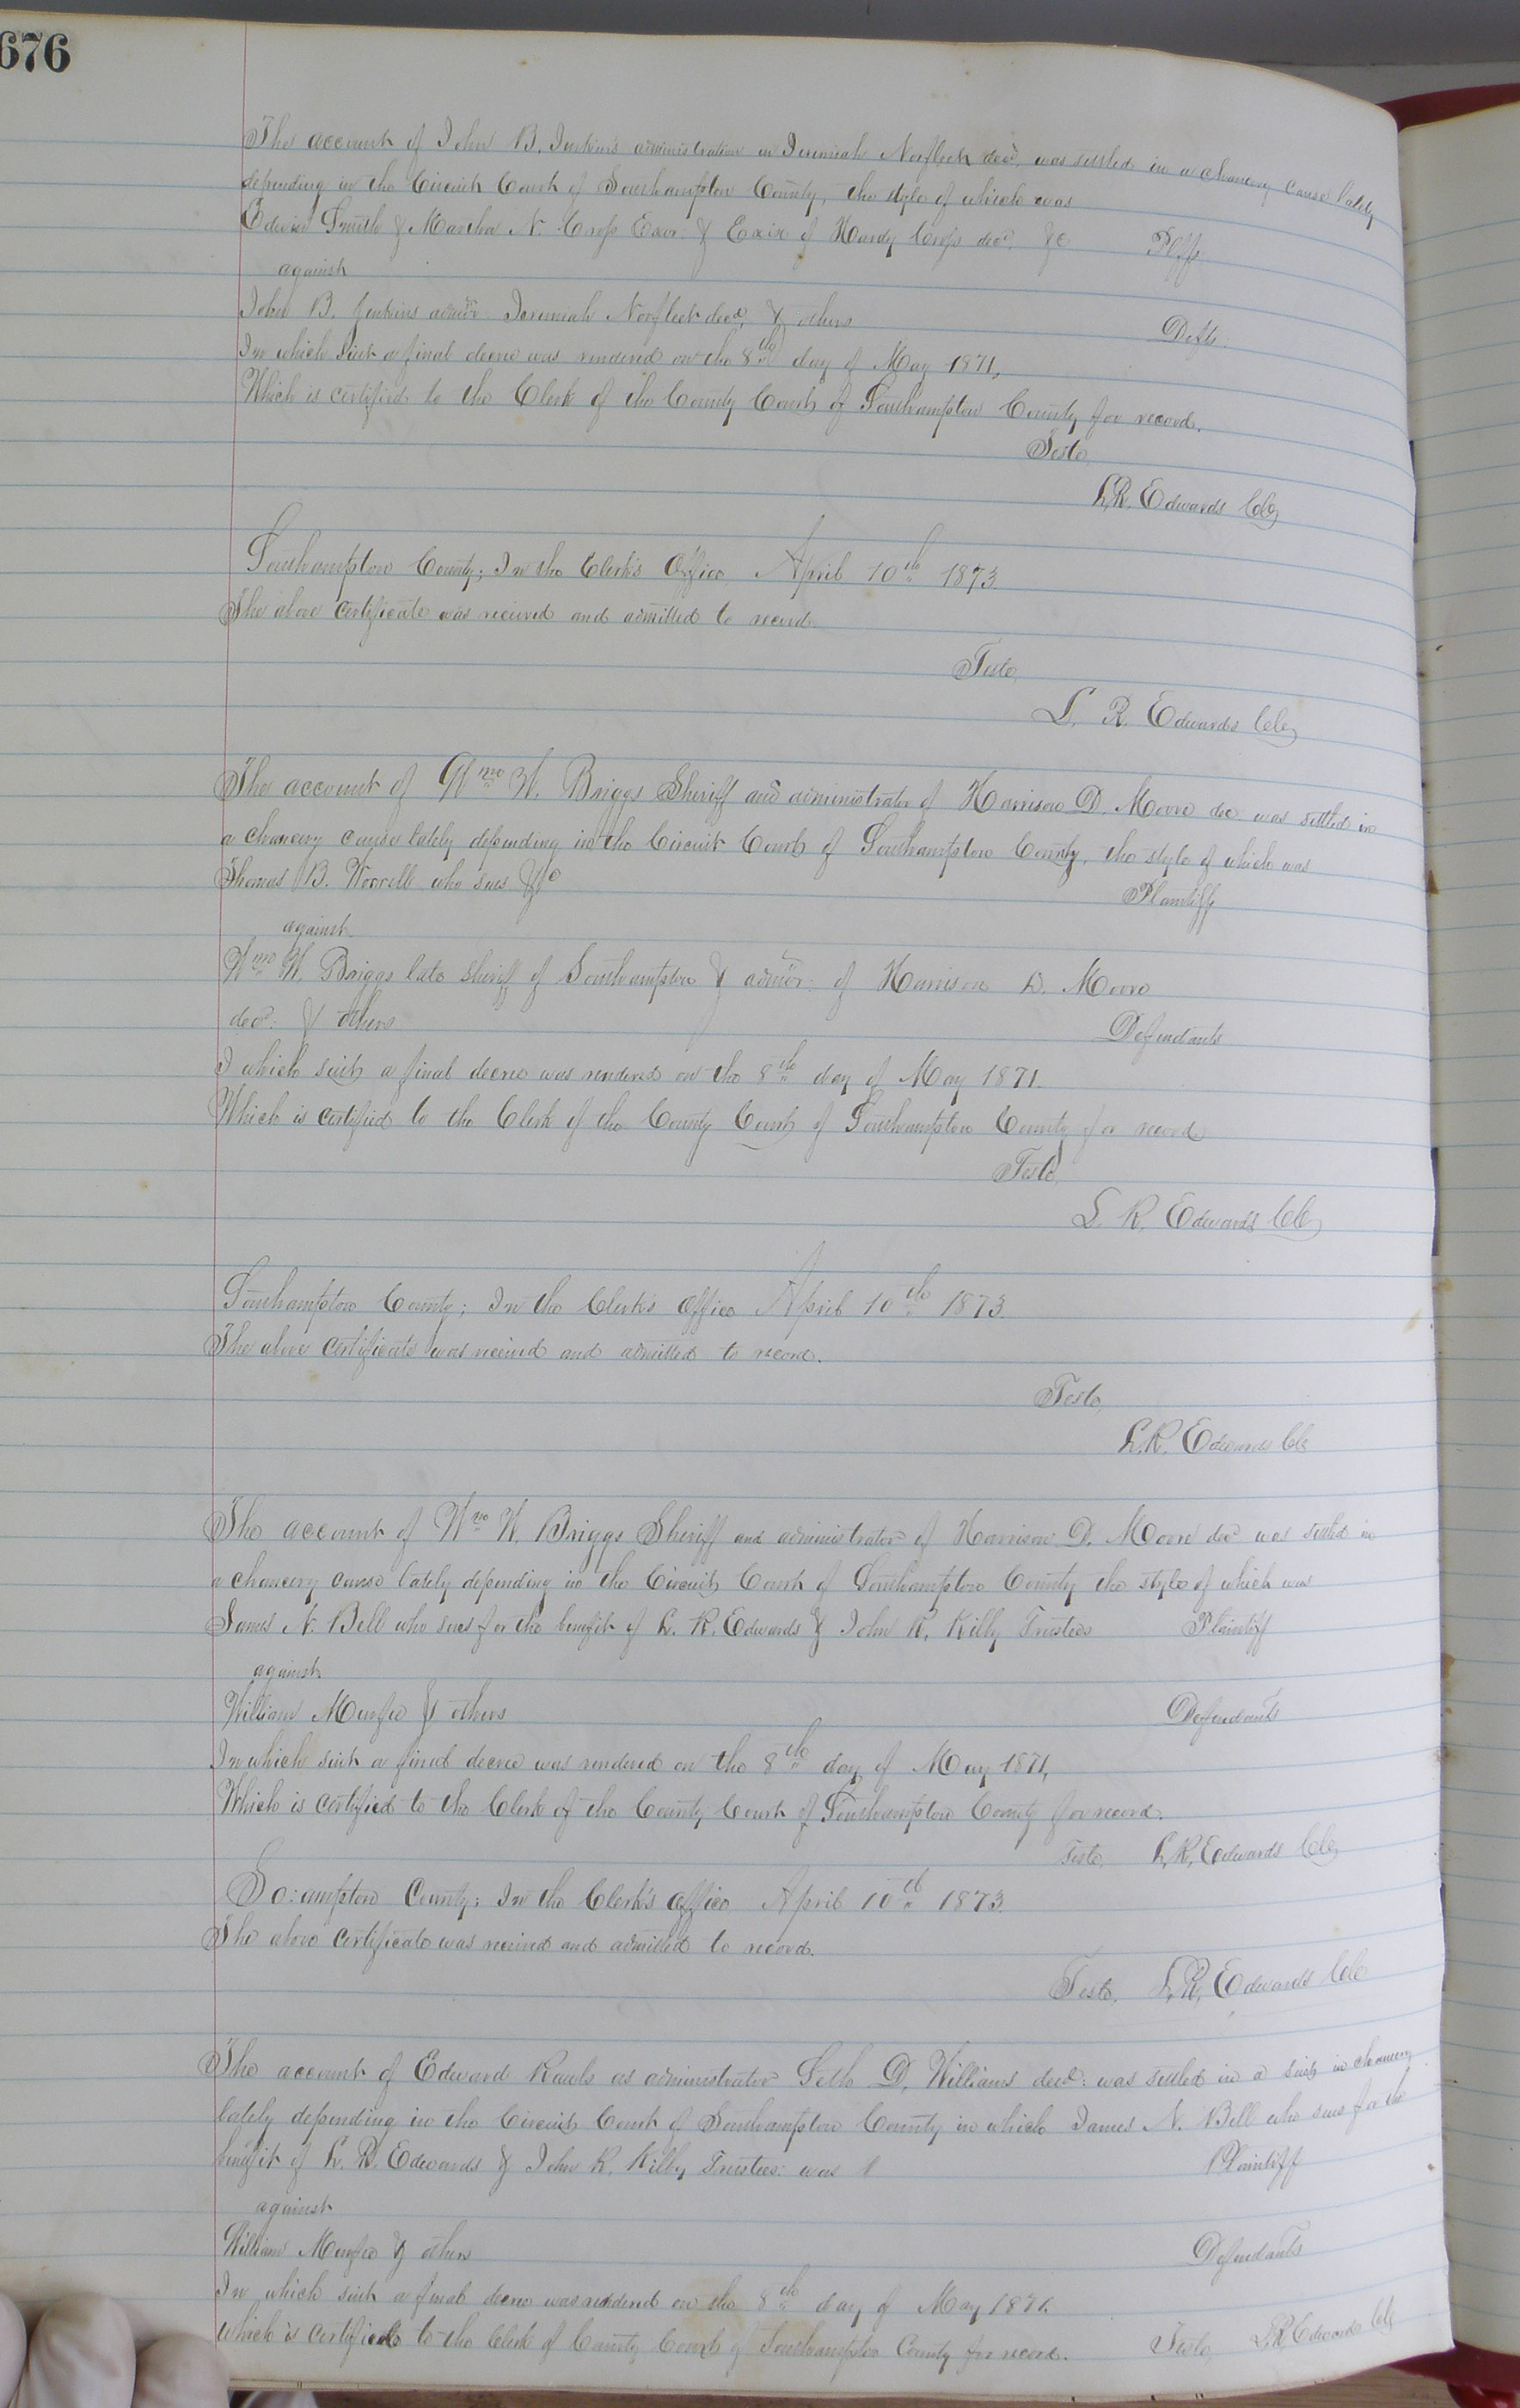 676
The account of John B. Jenkins administration on Jeremiah Norfleet decd. was settled in a chancery cause lately
depending in the Circuit Court of Southampton County, the style of which was
Edwin Smith & Martha N. Crofs Exor: & Exix of Hardy Crofs decd. &c Plffs
against
John B. Jenkins admor Jeremiah Norfleet decd. & others Defts.
In which suit a final decree was rendered on the 8th day of May 1871,
Which is certified to the Clerk of the County Court of Southampton County for record.
Teste,
L.R. Edwards Clk
Southampton County; In the Clerk's Office April 10th 1873.
The above certificate was received and admitted to record.
Teste,
L. R. Edwards Clk
The account of Wm W. Briggs Sheriff and administrator of Harrison D. Moore dec was settled in
a chancery cause lately depending in the Circuit Court of Southampton County, the style of which was
Thomas B. Worrell who sues &c Plaintiff
against
Wm W. Briggs late Sheriff of Southampton & admor: of Harrison D. Moore
decd: & others Defendants
I which suit a final decree was rendered on the 8th day of May 1871.
Which is certified to the Clerk of the County Court of Southampton County for record
Teste,
L. R. Edwards Clk
Southampton County; In the Clerk's Office April 10th 1873.
The above certificate was received and admitted to record.
Teste,
L.R. Edwards Clk
The account of Wm W. Briggs Sheriff and administrator of Harrison D. Moore decd was settled in
a chancery cause lately depending in the Circuit Court of Southampton County the style of which was
James N. Bell who sues for the benefit of L. R. Edwards & John R. Kilby Trustees Plaintiff
against
William Murfee & others Defendants
In which suit a final decree was rendered on the 8th day of May 1871,
Which is certified to the Clerk of the County Court of Southampton County for record.
Teste, L.R. Edwards Clk
So:ampton County; In the Clerk's Office April 10th 1873.
The above certificate was received and admitted to record.
Teste. L.R. Edwards Clk
The account of Edward Rawls as administrator Seth D. Williams decd: was settled in a suit in chancery
lately depending in the Circuit Court of Southampton County in which James N. Bell who sues for the
benefit of L. R. Edwards & John R. Kilby Trustees: was Plaintiff
against
William Murfee & others Defendants
In which suit a final decree was rendered on the 8th day of May 1871.
which is certified to the Clerk of County Court of Southampton County for record. Teste, L.R Edwards Clk